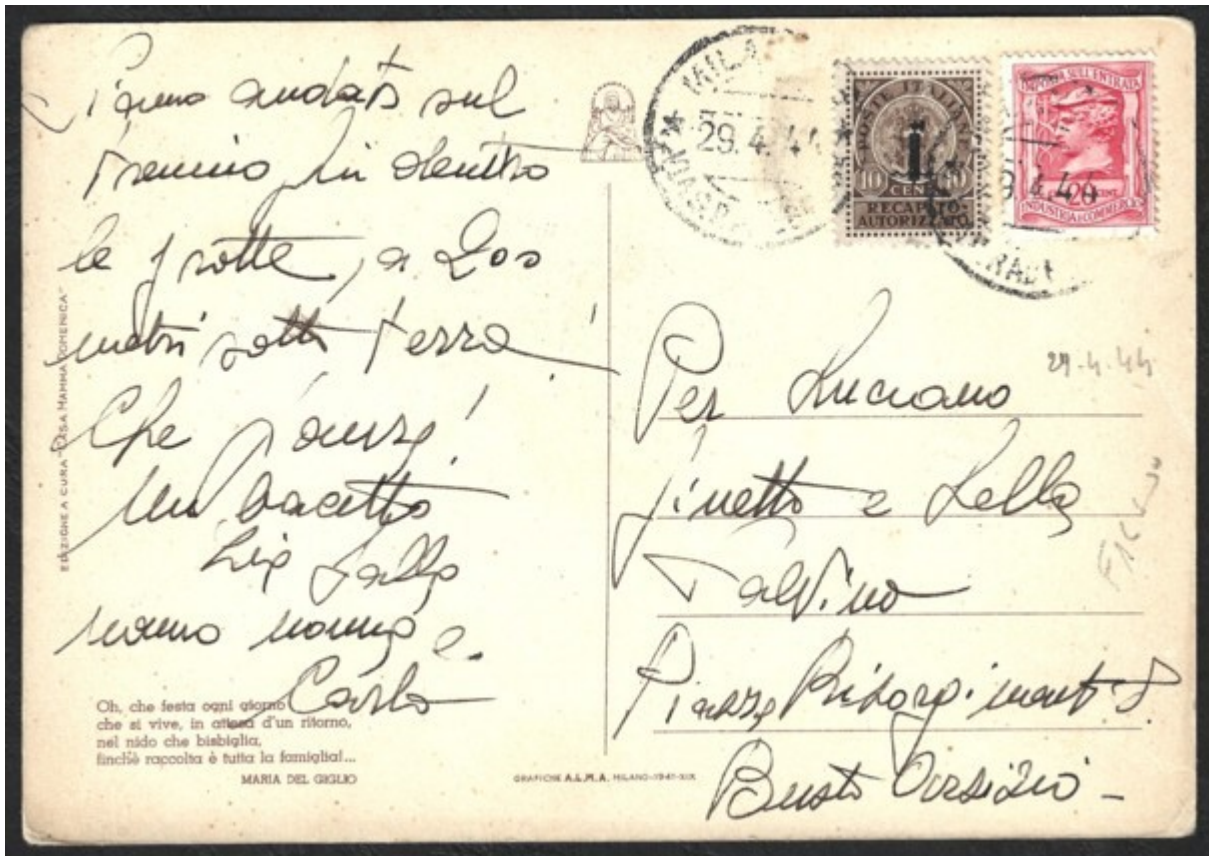 Siamo andati sul
trenino fin dentro
le grotte, a 200
metri sotto terra!
Che
Un bacetto
Zia
nonno nonna e
Carlo
EDIZIONE A CURA "CASA MAMMA DOMENICA"
Oh, che festa ogni giorno
che si vive, in attesa d'un ritorno,
nel nido che bisbiglia,
finchè raccolta è tutta la famiglia!...
MARIA DEL GIGLIO
GRAFICHE A.L.M.A. MILANO-1941-XIX
29.4.44
POSTE ITALIANE
10 CENT 10
RECAPITO
AUTORIZZATO
IMPOSTA SULL'ENTRATA
9.4.44
INDUSTRIA E COMMERCIO
29.4.44
Per Luciano
e Lella
Piazza Risorgimento 8
Busto Arsizio